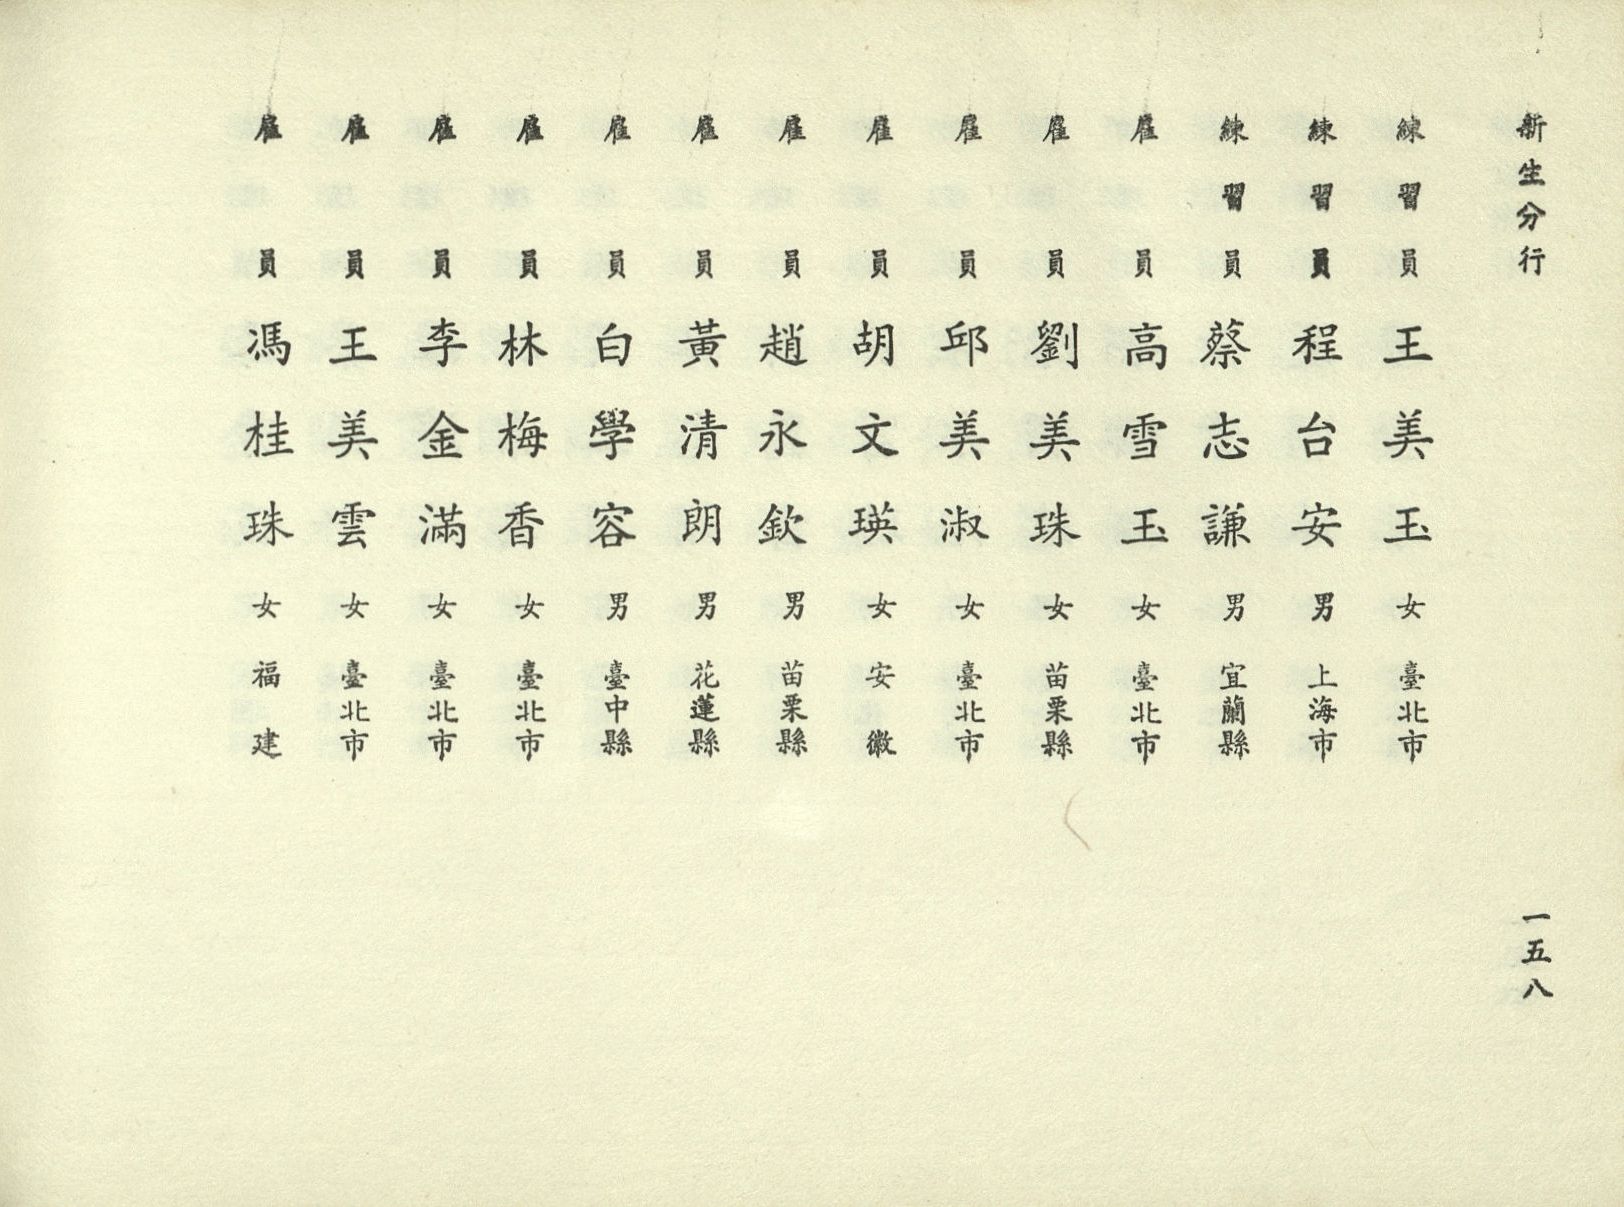 新生分行
一五八
練習員 王美玉 女 臺北市
練習員 程台安 男 上海市
練習員 蔡志謙 男 宜蘭縣
雇員 高雪玉 女 臺北市
雇員 劉美珠 女 苗栗縣
雇員 邱美淑 女 臺北市
雇員 胡文瑛 女 安徽
雇員 趙永欽 男 苗栗縣
雇員 黃清朗 男 花蓮縣
雇員 白學容 男 臺中縣
雇員 林梅香 女 臺北市
雇員 李金滿 女 臺北市
雇員 王美雲 女 臺北市
雇員 馮桂珠 女 福建